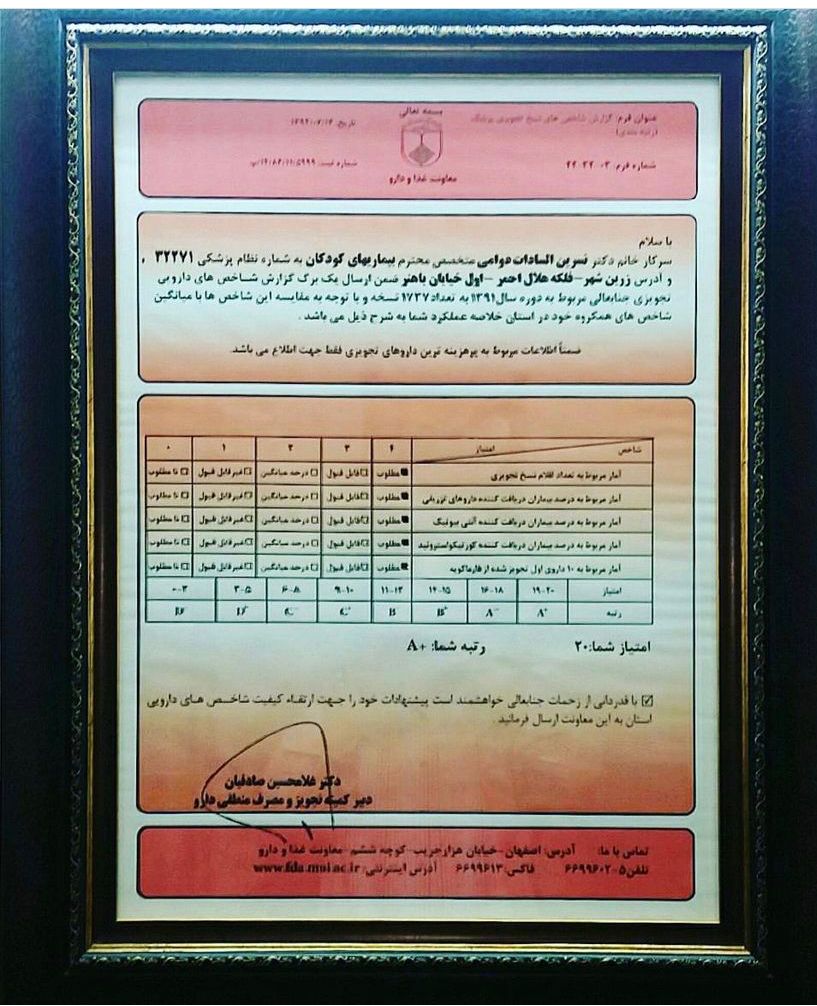 بسمه تعالی
عنوان فرم: گزارش شاخص های نسخ تجویزی پزشک
(رتبه بندی)
تاریخ:
شماره فرم:
شماره ثبت:
معاونت غذا و دارو
با سلام
سرکار خانم دکتر نسرین السادات دوامی متخصص محترم بیماریهای کودکان به شماره نظام پزشکی ۳۲۲۷۱
و آدرس زرین شهر-فلکه هلال احمر -اول خیابان باهنر ضمن ارسال یک برگ گزارش شاخص های دارویی
تجویزی جنابعالی مربوط به دوره سال ۱۳۹۱ به تعداد ۱۷۳۷ نسخه و با توجه به مقایسه این شاخص ها با میانگین
شاخص های همگروه خود در استان خلاصه عملکرد شما به شرح ذیل می باشد .
ضمناً اطلاعات مربوط به پرهزینه ترین داروهای تجویزی فقط جهت اطلاع می باشد.
شاخص امتیاز ۴ ۳ ۲ ۱ ۰
آمار مربوط به تعداد اقلام نسخ تجویزی ■مطلوب □قابل قبول □ در حد میانگین □غیر قابل قبول □ نا مطلوب
آمار مربوط به درصد بیماران دریافت کننده داروهای تزریقی ■مطلوب □قابل قبول □ در حد میانگین □غیر قابل قبول □ نا مطلوب
آمار مربوط به درصد بیماران دریافت کننده آنتی بیوتیک ■مطلوب □قابل قبول □ در حد میانگین □غیر قابل قبول □ نا مطلوب
آمار مربوط به درصد بیماران دریافت کننده کورتیکواستروئید ■مطلوب □قابل قبول □ در حد میانگین □غیر قابل قبول □ نا مطلوب
آمار مربوط به ۱۰ داروی اول تجویز شده از فارماکوپه ■مطلوب □قابل قبول □ در حد میانگین □غیر قابل قبول □ نا مطلوب
امتیاز ۱۹-۲۰ ۱۶-۱۸ ۱۴-۱۵ ۱۱-۱۳ ۹-۱۰ ۶-۸ ۳-۵ ۰-۳
رتبه A⁺ A⁻ B⁺ B C⁺ C⁻ D⁺ D⁻
امتیاز شما:۲۰ رتبه شما: +A
☑ با قدردانی از زحمات جنابعالی خواهشمند است پیشنهادات خود را جهت ارتقاء کیفیت شاخص های دارویی
استان به این معاونت ارسال فرمائید .
دکتر غلامحسین صادقیان
دبیر کمیته تجویز و مصرف منطقی دارو
تماس با ما: آدرس: اصفهان-خیابان هزارجریب-کوچه ششم-معاونت غذا و دارو
تلفن:۵-۶۶۹۹۶۰۲ فاکس:۶۶۹۹۶۱۳ آدرس اینترنتی: www.fda.mui.ac.ir